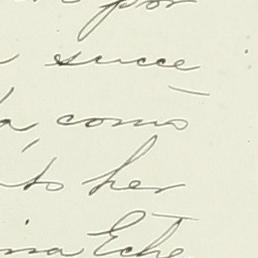 por
succe
como
to her
Eche